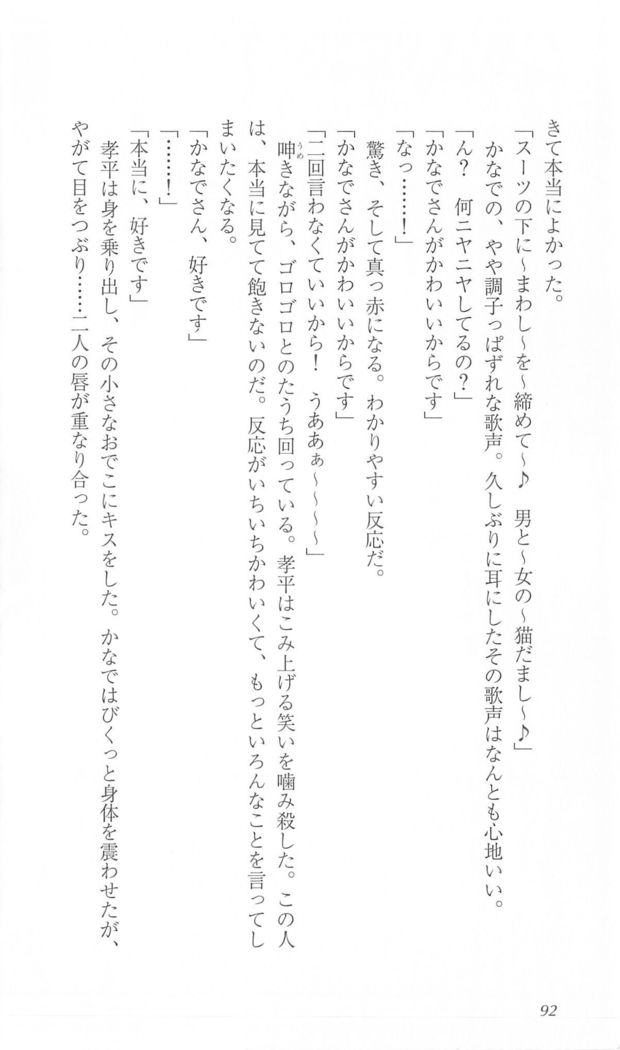 きて本当によかった。
「スーツの下に～まわし～を～締めて～♪　男と～女の～猫だまし～♪」
かなでの、やや調子っぱずれな歌声。久しぶりに耳にしたその歌声はなんとも心地いい。
「ん？　何ニヤニヤしてるの？」
「かなでさんがかわいいからです」
「なっ……！」
驚き、そして真っ赤になる。わかりやすい反応だ。
「かなでさんがかわいいからです」
「二回言わなくていいから！　うああぁ～～～～」
呻きながら、ゴロゴロとのたうち回っている。孝平はこみ上げる笑いを噛み殺した。この人
うめ
は、本当に見てて飽きないのだ。反応がいちいちかわいくて、もっといろんなことを言ってし
まいたくなる。
「かなでさん、好きです」
「……！」
「本当に、好きです」
孝平は身を乗り出し、その小さなおでこにキスをした。かなではびくっと身体を震わせたが、
やがて目をつぶり……二人の唇が重なり合った。
92